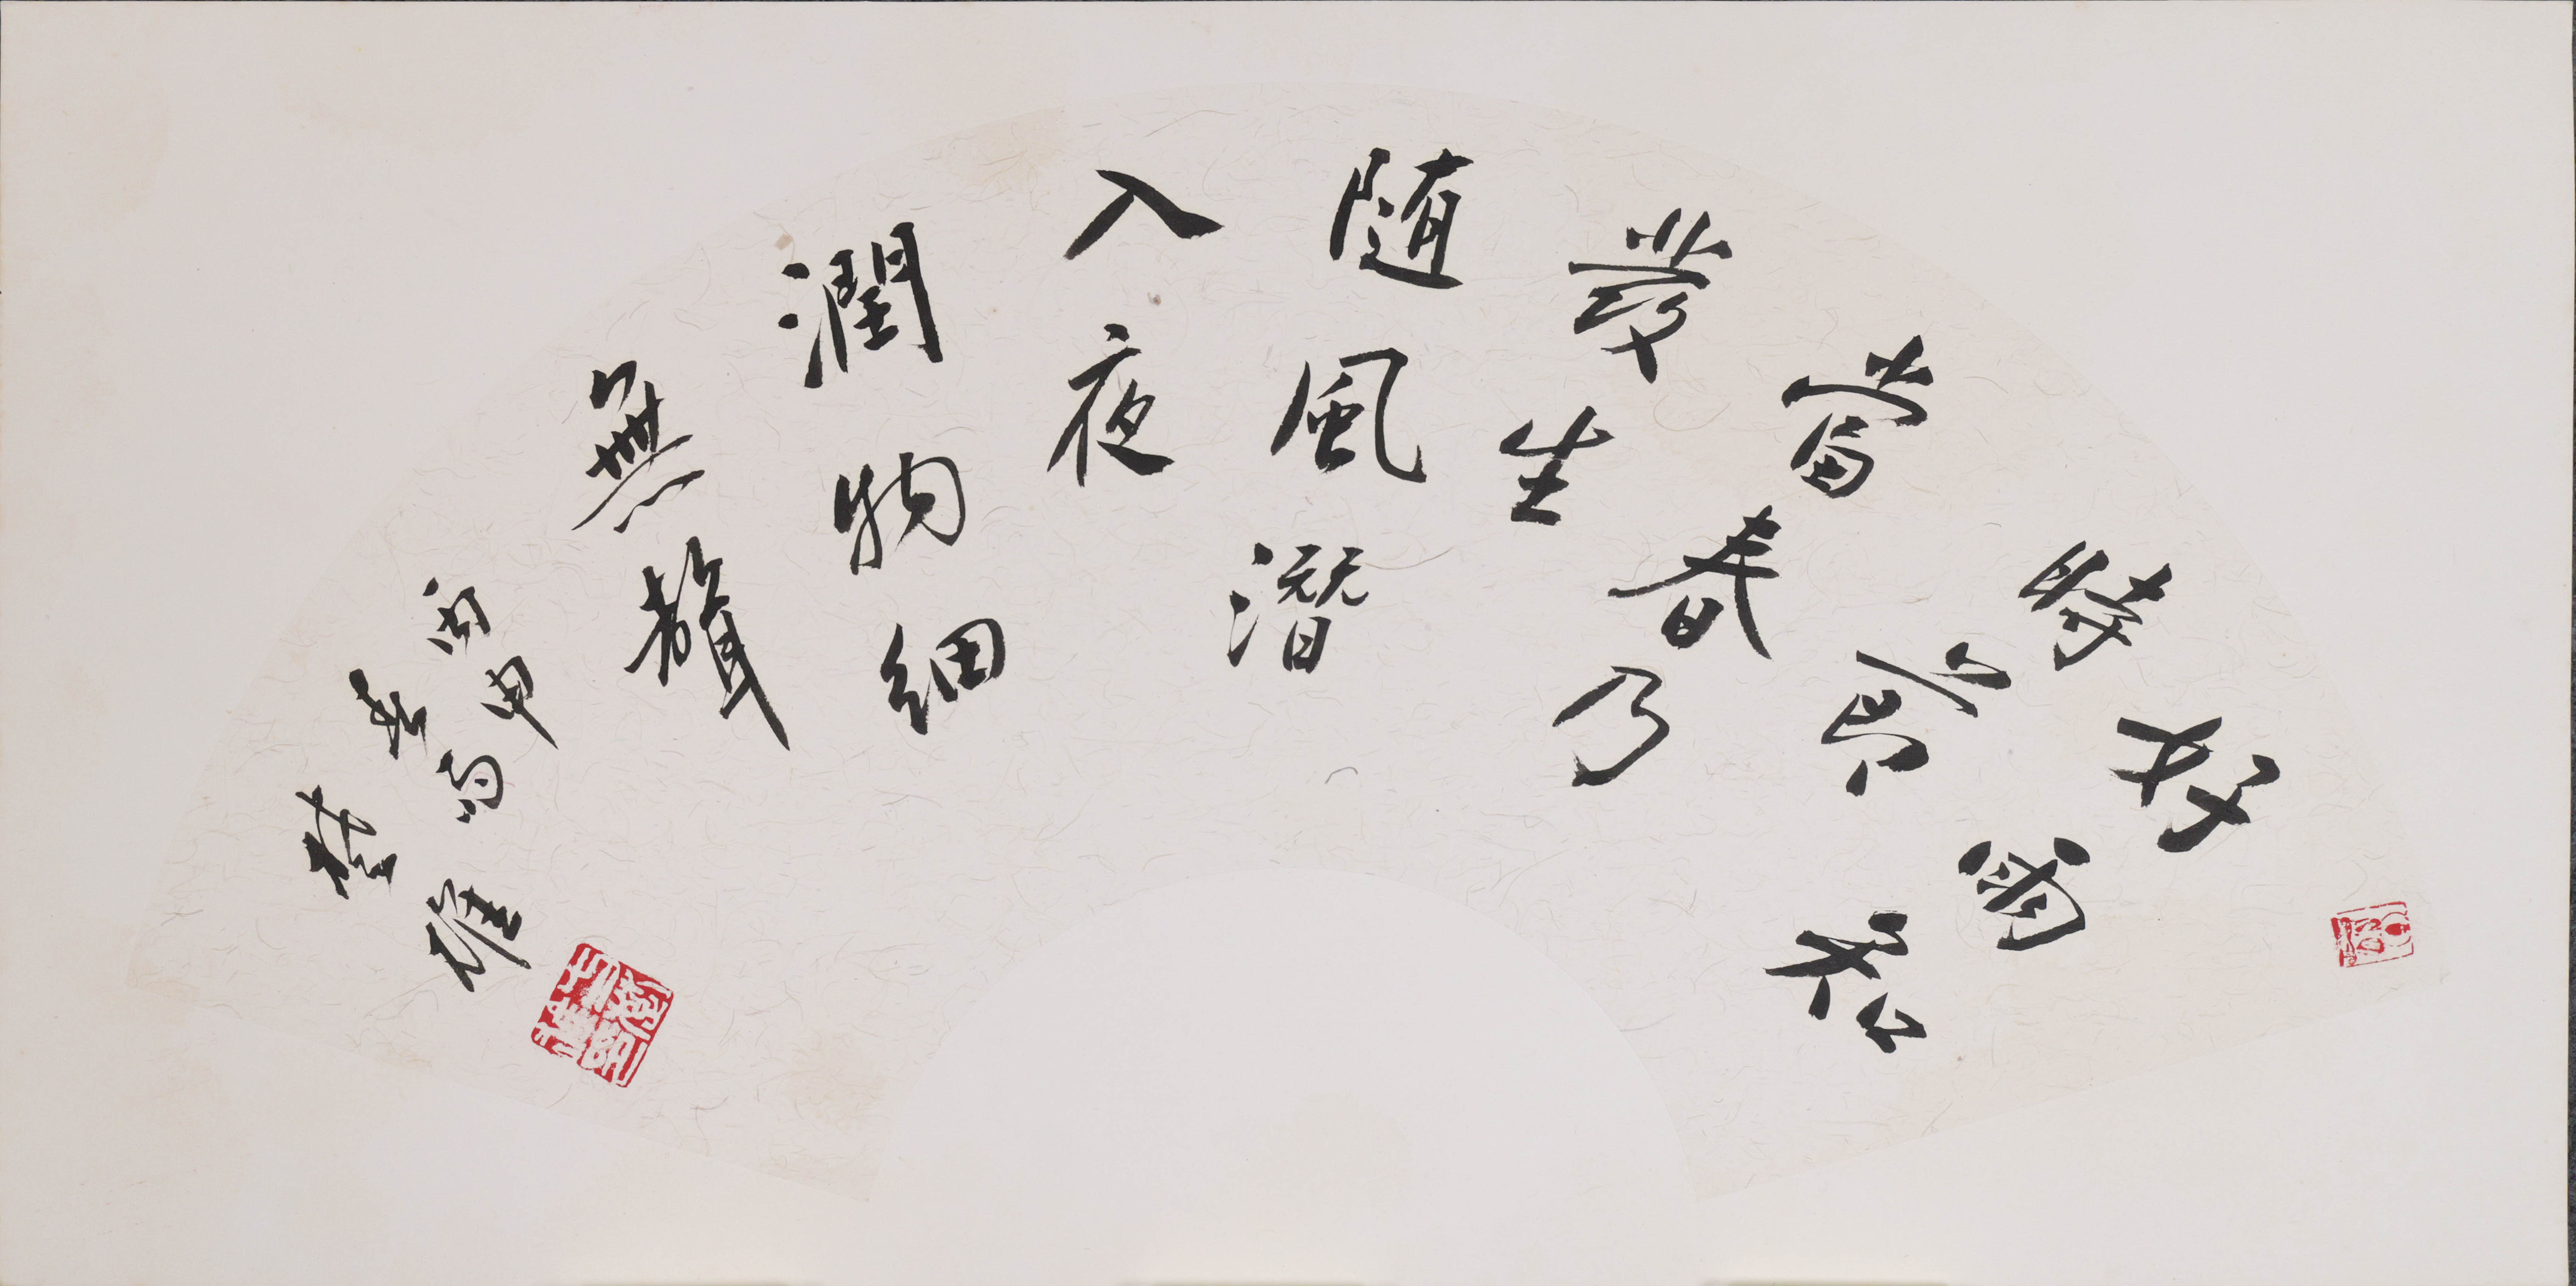 好雨知
時節
當春乃
發生
随風潛
入夜
潤物細
無聲
丙申
雨
雄